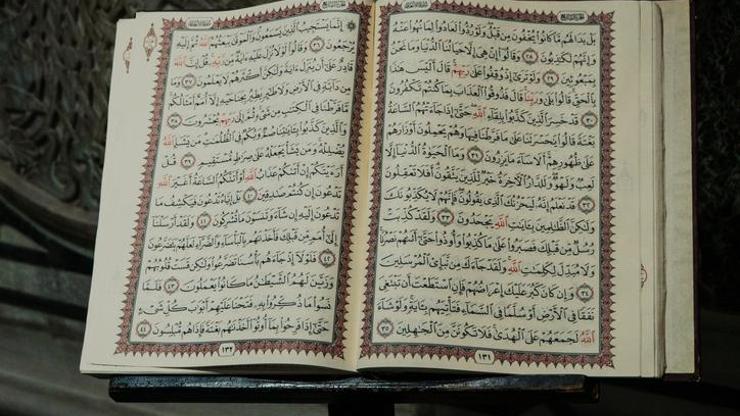 بَلْ بَدَا لَهُم مَّا كَانُوا۟ يُخْفُونَ مِن قَبْلُ وَلَوْ رُدُّوا۟ لَعَادُوا۟ لِمَا نُهُوا۟ عَنْهُ
وَإِنَّهُمْ لَكَـٰذِبُونَ ٢٨ وَقَالُوٓا۟ إِنْ هِىَ إِلَّا حَيَاتُنَا ٱلدُّنْيَا وَمَا نَحْنُ
بِمَبْعُوثِينَ ٢٩ وَلَوْ تَرَىٰٓ إِذْ وُقِفُوا۟ عَلَىٰ رَبِّهِمْ قَالَ أَلَيْسَ هَـٰذَا
بِٱلْحَقِّ قَالُوا۟ بَلَىٰ وَرَبِّنَا قَالَ فَذُوقُوا۟ ٱلْعَذَابَ بِمَا كُنتُمْ تَكْفُرُونَ
٣٠ قَدْ خَسِرَ ٱلَّذِينَ كَذَّبُوا۟ بِلِقَآءِ ٱللَّهِ حَتَّىٰٓ إِذَا جَآءَتْهُمُ ٱلسَّاعَةُ
بَغْتَةً قَالُوا۟ يَـٰحَسْرَتَنَا عَلَىٰ مَا فَرَّطْنَا فِيهَا وَهُمْ يَحْمِلُونَ أَوْزَارَهُمْ
عَلَىٰ ظُهُورِهِمْ أَلَا سَآءَ مَا يَزِرُونَ ٣١ وَمَا ٱلْحَيَوٰةُ ٱلدُّنْيَآ إِلَّا
لَعِبٌ وَلَهْوٌ وَلَلدَّارُ ٱلْـَٔاخِرَةُ خَيْرٌ لِّلَّذِينَ يَتَّقُونَ أَفَلَا تَعْقِلُونَ
٣٢ قَدْ نَعْلَمُ إِنَّهُۥ لَيَحْزُنُكَ ٱلَّذِى يَقُولُونَ فَإِنَّهُمْ لَا يُكَذِّبُونَكَ
وَلَـٰكِنَّ ٱلظَّـٰلِمِينَ بِـَٔايَـٰتِ ٱللَّهِ يَجْحَدُونَ ٣٣ وَلَقَدْ كُذِّبَتْ
رُسُلٌ مِّن قَبْلِكَ فَصَبَرُوا۟ عَلَىٰ مَا كُذِّبُوا۟ وَأُوذُوا۟ حَتَّىٰٓ أَتَىٰهُمْ نَصْرُنَا
وَلَا مُبَدِّلَ لِكَلِمَـٰتِ ٱللَّهِ وَلَقَدْ جَآءَكَ مِن نَّبَإِى۟ ٱلْمُرْسَلِينَ
٣٤ وَإِن كَانَ كَبُرَ عَلَيْكَ إِعْرَاضُهُمْ فَإِنِ ٱسْتَطَعْتَ أَن تَبْتَغِىَ
نَفَقًا فِى ٱلْأَرْضِ أَوْ سُلَّمًا فِى ٱلسَّمَآءِ فَتَأْتِيَهُم بِـَٔايَةٍ وَلَوْ شَآءَ
ٱللَّهُ لَجَمَعَهُمْ عَلَى ٱلْهُدَىٰ فَلَا تَكُونَنَّ مِنَ ٱلْجَـٰهِلِينَ ٣٥
١٣١
إِنَّمَا يَسْتَجِيبُ ٱلَّذِينَ يَسْمَعُونَ وَٱلْمَوْتَىٰ يَبْعَثُهُمُ ٱللَّهُ ثُمَّ إِلَيْهِ
يُرْجَعُونَ ٣٦ وَقَالُوا۟ لَوْلَا نُزِّلَ عَلَيْهِ ءَايَةٌ مِّن رَّبِّهِۦ قُلْ إِنَّ ٱللَّهَ
قَادِرٌ عَلَىٰٓ أَن يُنَزِّلَ ءَايَةً وَلَـٰكِنَّ أَكْثَرَهُمْ لَا يَعْلَمُونَ ٣٧ وَمَا
مِن دَآبَّةٍ فِى ٱلْأَرْضِ وَلَا طَـٰٓئِرٍ يَطِيرُ بِجَنَاحَيْهِ إِلَّآ أُمَمٌ أَمْثَالُكُم
مَّا فَرَّطْنَا فِى ٱلْكِتَـٰبِ مِن شَىْءٍ ثُمَّ إِلَىٰ رَبِّهِمْ يُحْشَرُونَ ٣٨
وَٱلَّذِينَ كَذَّبُوا۟ بِـَٔايَـٰتِنَا صُمٌّ وَبُكْمٌ فِى ٱلظُّلُمَـٰتِ مَن يَشَإِ ٱللَّهُ
يُضْلِلْهُ وَمَن يَشَأْ يَجْعَلْهُ عَلَىٰ صِرَٰطٍ مُّسْتَقِيمٍ ٣٩ قُلْ
أَرَءَيْتَكُمْ إِنْ أَتَىٰكُمْ عَذَابُ ٱللَّهِ أَوْ أَتَتْكُمُ ٱلسَّاعَةُ أَغَيْرَ ٱللَّهِ
تَدْعُونَ إِن كُنتُمْ صَـٰدِقِينَ ٤٠ بَلْ إِيَّاهُ تَدْعُونَ فَيَكْشِفُ مَا
تَدْعُونَ إِلَيْهِ إِن شَآءَ وَتَنسَوْنَ مَا تُشْرِكُونَ ٤١ وَلَقَدْ أَرْسَلْنَآ
إِلَىٰٓ أُمَمٍ مِّن قَبْلِكَ فَأَخَذْنَـٰهُم بِٱلْبَأْسَآءِ وَٱلضَّرَّآءِ لَعَلَّهُمْ يَتَضَرَّعُونَ
٤٢ فَلَوْلَآ إِذْ جَآءَهُم بَأْسُنَا تَضَرَّعُوا۟ وَلَـٰكِن قَسَتْ قُلُوبُهُمْ
وَزَيَّنَ لَهُمُ ٱلشَّيْطَـٰنُ مَا كَانُوا۟ يَعْمَلُونَ ٤٣ فَلَمَّا
نَسُوا۟ مَا ذُكِّرُوا۟ بِهِۦ فَتَحْنَا عَلَيْهِمْ أَبْوَٰبَ كُلِّ شَىْءٍ
حَتَّىٰٓ إِذَا فَرِحُوا۟ بِمَآ أُوتُوٓا۟ أَخَذْنَـٰهُم بَغْتَةً فَإِذَا هُم مُّبْلِسُونَ ٤٤
١٣٢